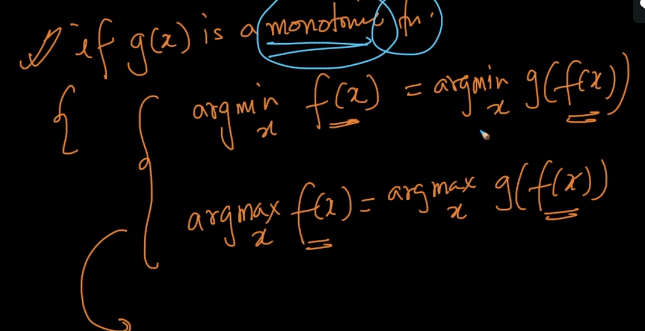 if g(x) is a monotonic fn.
argmin x f(x) = argmin x g(f(x))
argmax x f(x) = argmax x g(f(x))